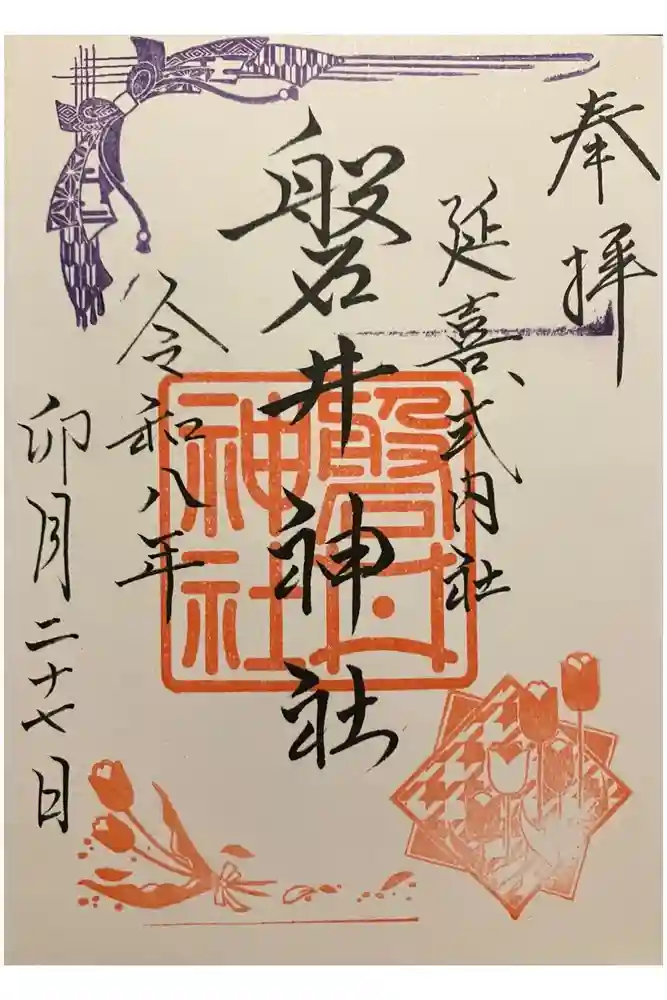 奉拝
延喜式内社
磐井神社
磐井神社
令和八年
卯月二十七日